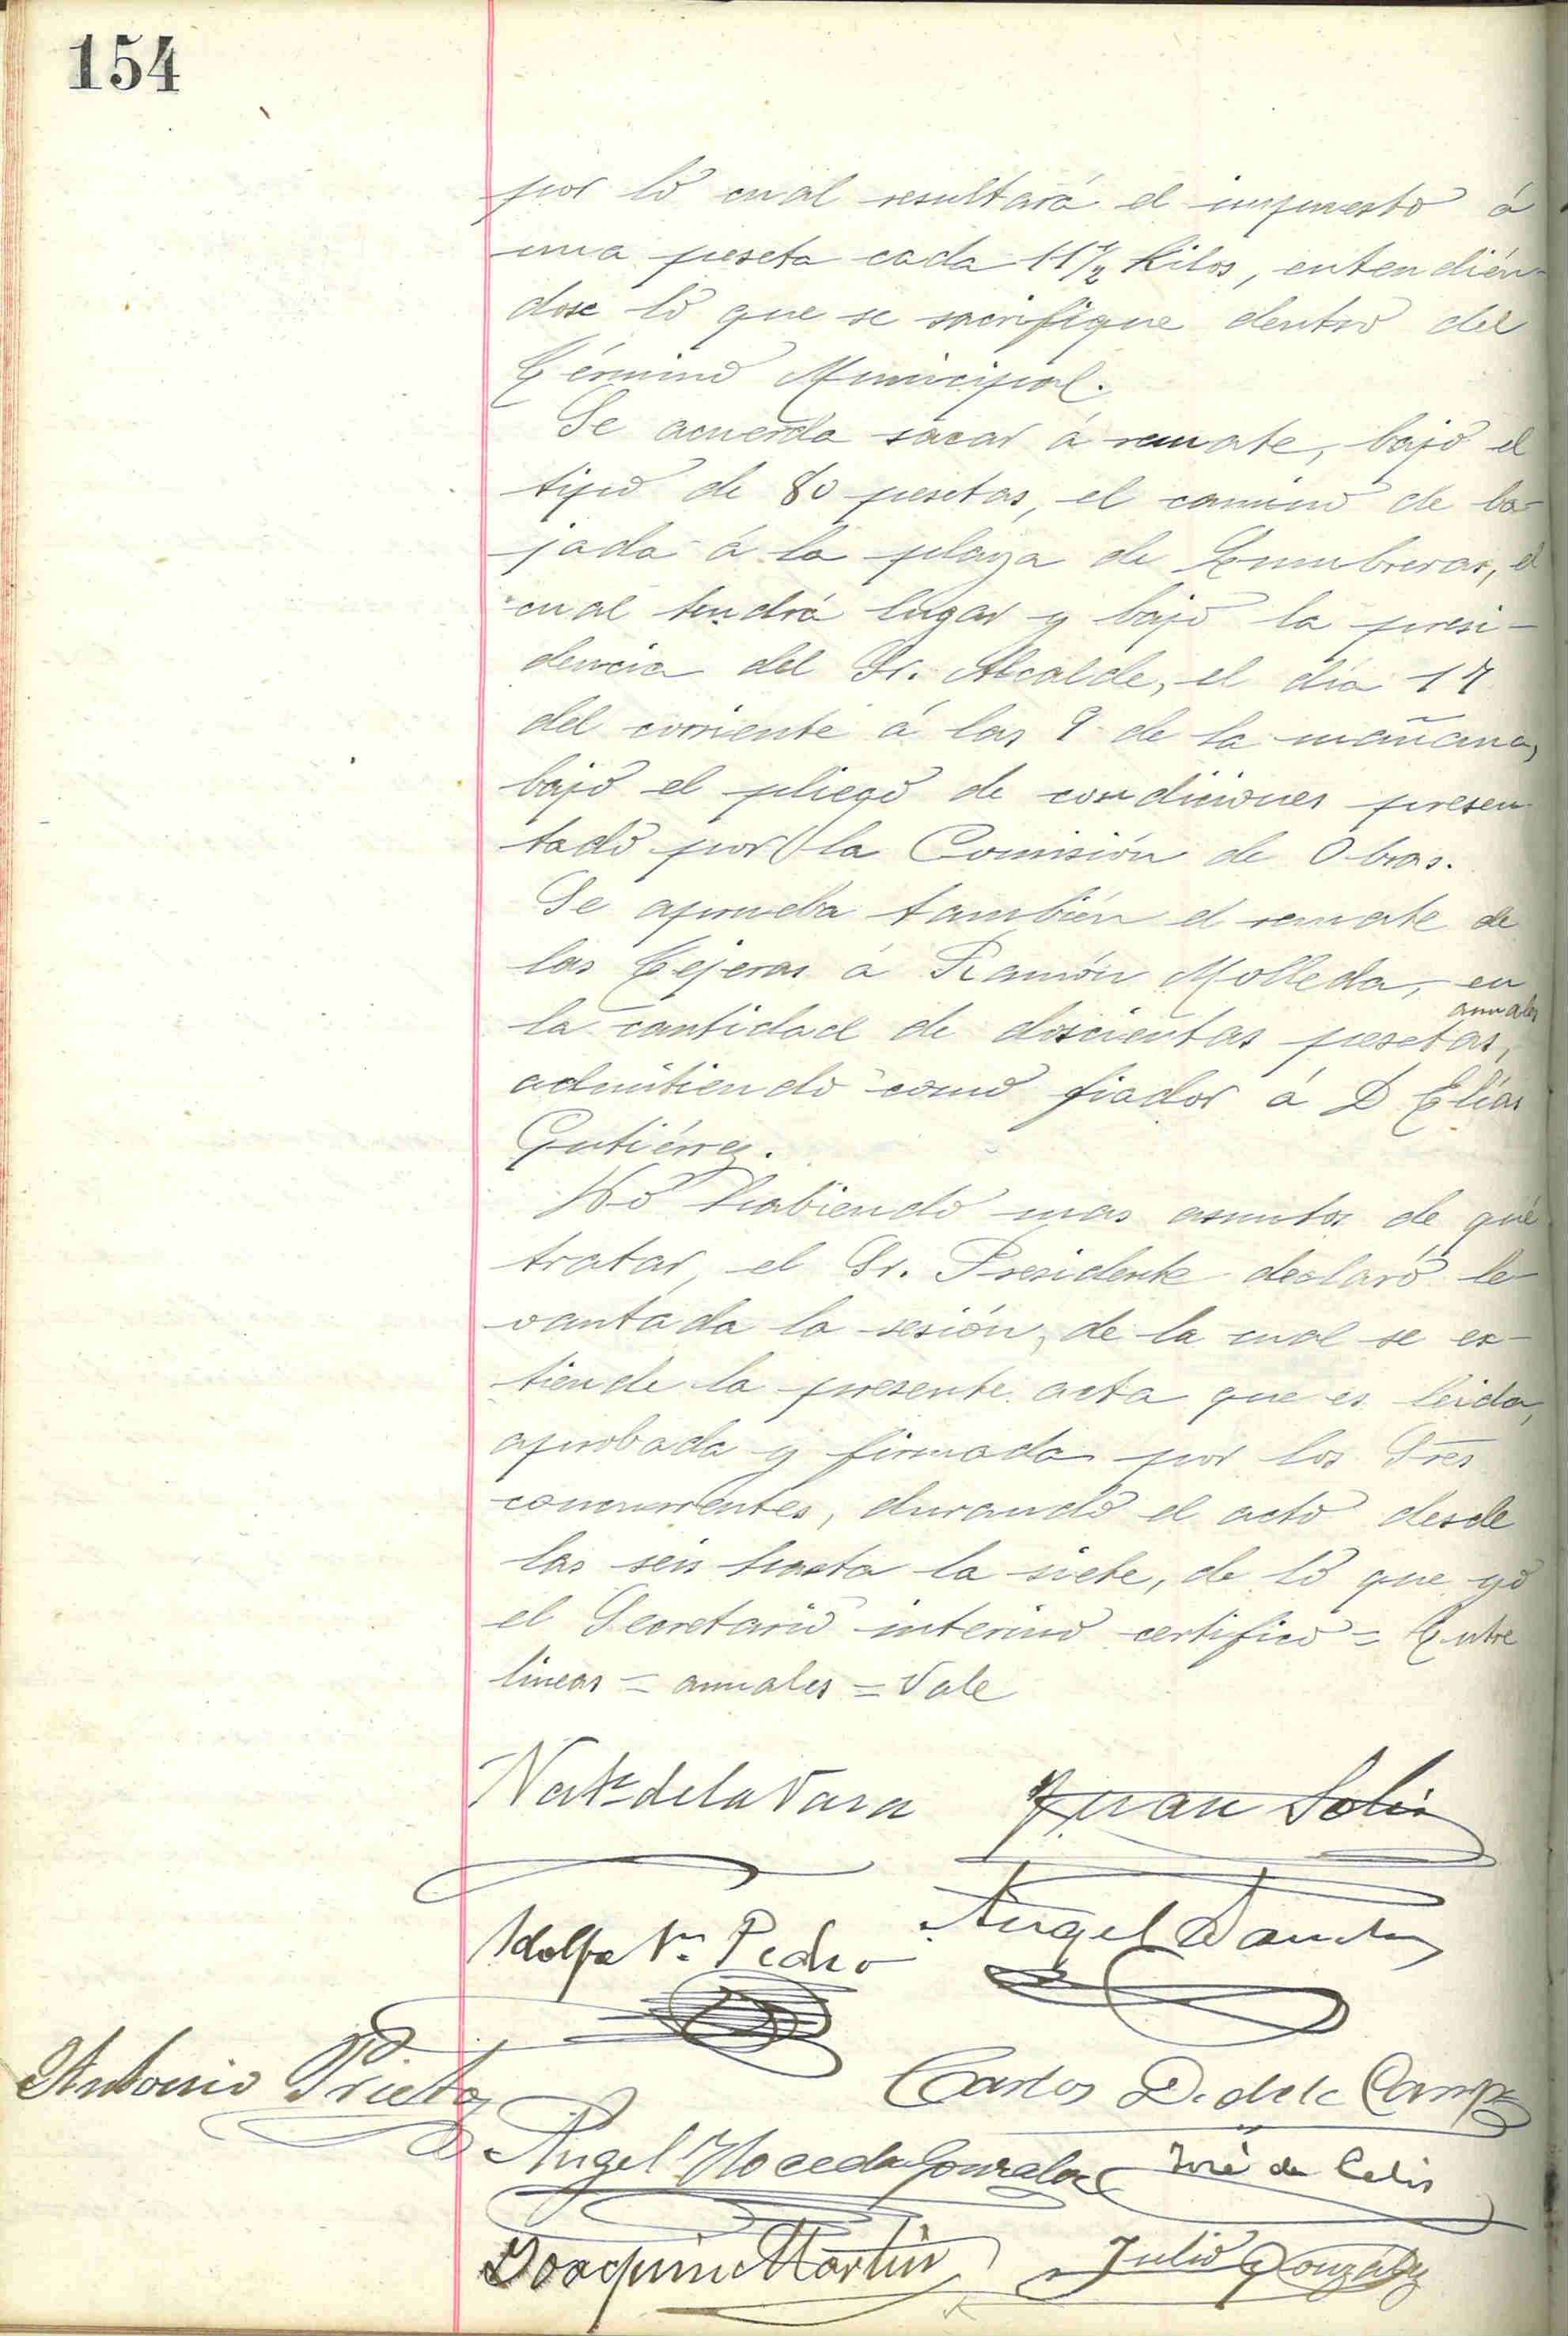 154
por lo cual resultará el impuesto á
una peseta cada 11 1/2 kilos, entendién-
dose lo que se sacrifique dentro del
Término Municipal.
Se acuerda sacar á remate, bajo el
tipo de 80 pesetas, el camino de ba-
jada á la playa de Enumbreras, el
cual tendrá lugar y bajo la presi-
dencia del Sr. Alcalde, el día 17
del corriente á las 9 de la mañana,
bajo el pliego de condiciones presen
tado por la Comisión de Obras.
Se aprueba también el remate de
las Tejeras á Ramón Molleda, en
anuales
la cantidad de doscientas pesetas,
admitiendo como fiador á D Elías
Gutiérrez.
No habiendo mas asuntos de qué
tratar, el Sr. Presidente declaró le-
vantada la sesión, de la cual se ex-
tiende la presente acta que es leida,
aprobada y firmada por los Sres
concurrentes, durando el acto desde
las seis hasta la siete, de lo que yo
el Secretario interino certifico = Entre
lineas = anuales = Vale
de la Vara Juan Solis
Adolfo Pedro Angel Sanchez
Antonio Prieto Carlos D. de la Campa
Angel Noceda Gonzalez José de Celis
Joaquin Martin Julio González